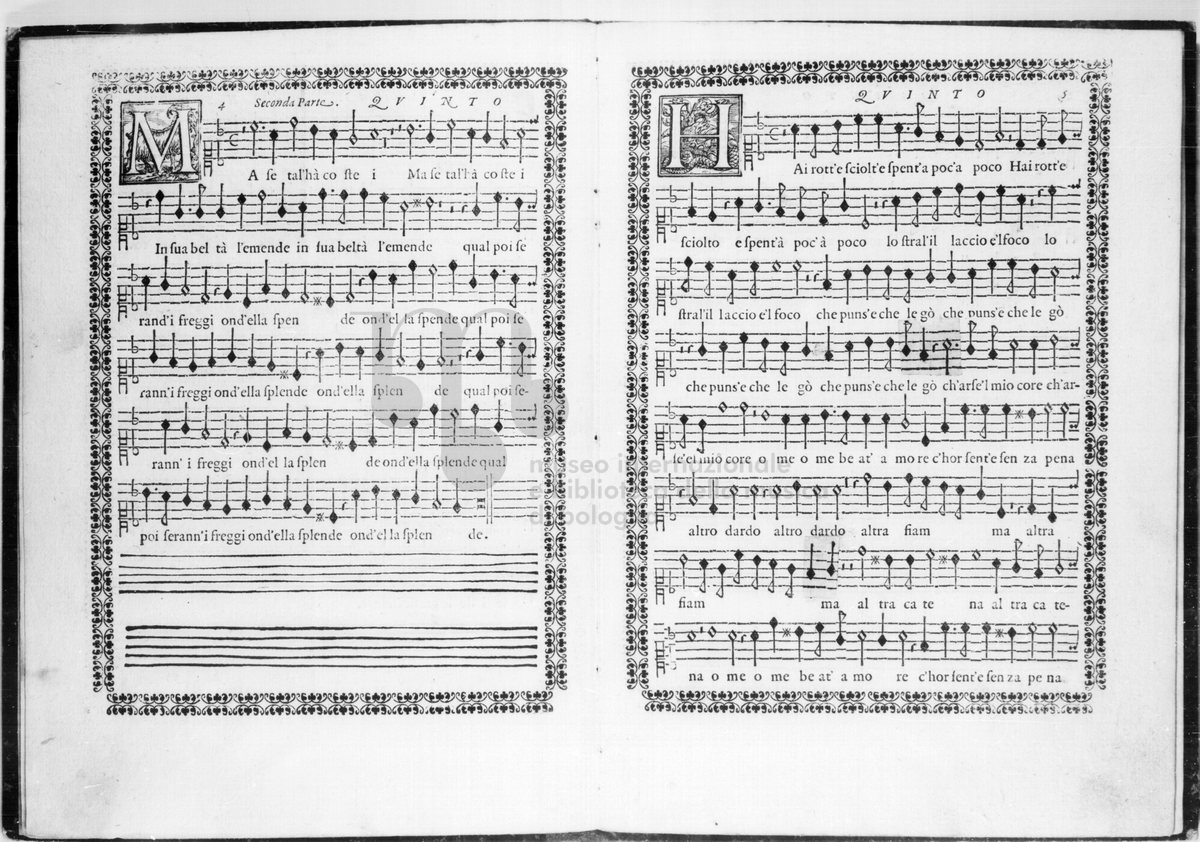 4 Seconda Parte. QVINTO
MA se tal'hà co ste i Ma se tal'hà co ste i
In sua bel tà l'emende in sua beltà l'emende qual poi se
rand'i freggi ond'ella spen de ond'el la spende qual poi se
rann'i freggi ond'ella splende ond'ella splen de qual poi se-
rann' i freggi ond'el la splen de ond'ella splende qual
poi serann'i freggi ond'ella splende ond'el la splen de.
QVINTO 5
HAi rott'e sciolt'e spent'a poc'a poco Hai rott'e
sciolto e spent'à poc'à poco lo stral'il laccio e'l foco lo
stral'il laccio e'l foco che puns'e che le gò che puns'e che le gò
che puns'e che le gò che puns'e che le gò ch'arse'l mio core ch'ar-
se'el mio core o me o me be at' a mo re c'hor sent'e sen za pena
altro dardo altro dardo altra fiam ma altra
fiam ma al tra ca te na al tra ca te-
na o me o me be at' a mo re c'hor sent'e sen za pe na
museo internazionale
e biblioteca della musica
di bologna